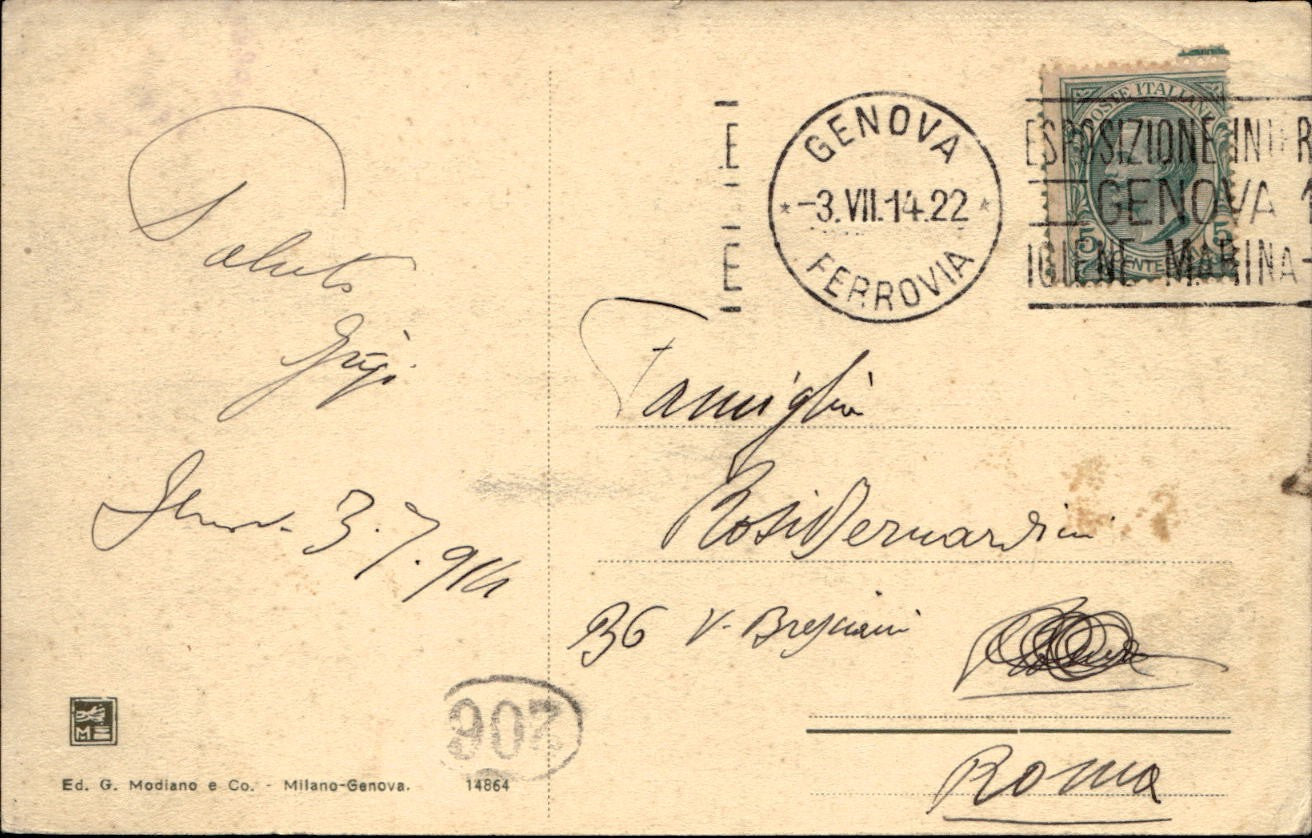 Saluti
Gigi
Genova 3.7.914
GENOVA
-3.VII.14.22
FERROVIA
E
E
POSTE ITALIANE
ESPOSIZIONE INTER
GENOVA 1
IGIENE MARINA-
5 CENTE 5
Famiglia
Rosi Bernardini
36 V. Bresciani
Roma
206
M E
Ed. G. Modiano e Co. - Milano-Genova.
14864